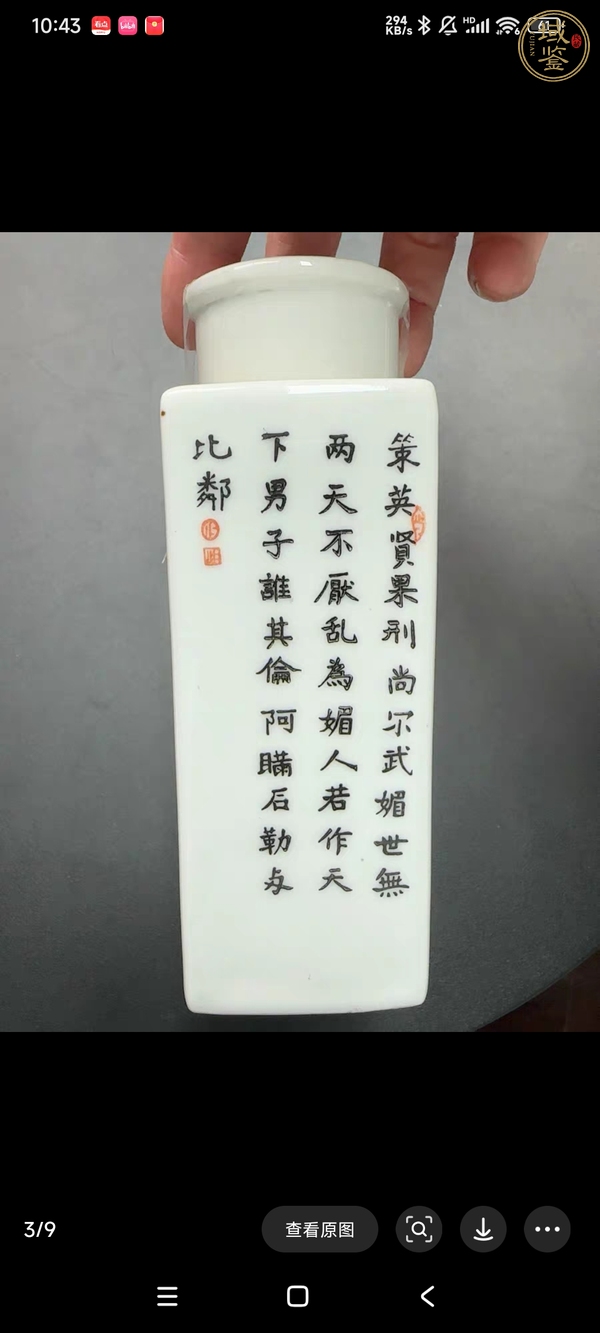 10:43
294
KB/s
HD
6
61
域鉴
策英賢果刑尚尔武媚世無
两天不厭乱為媚人若作天
下男子誰其倫阿瞞石勒与
比鄰
3/9
查看原图